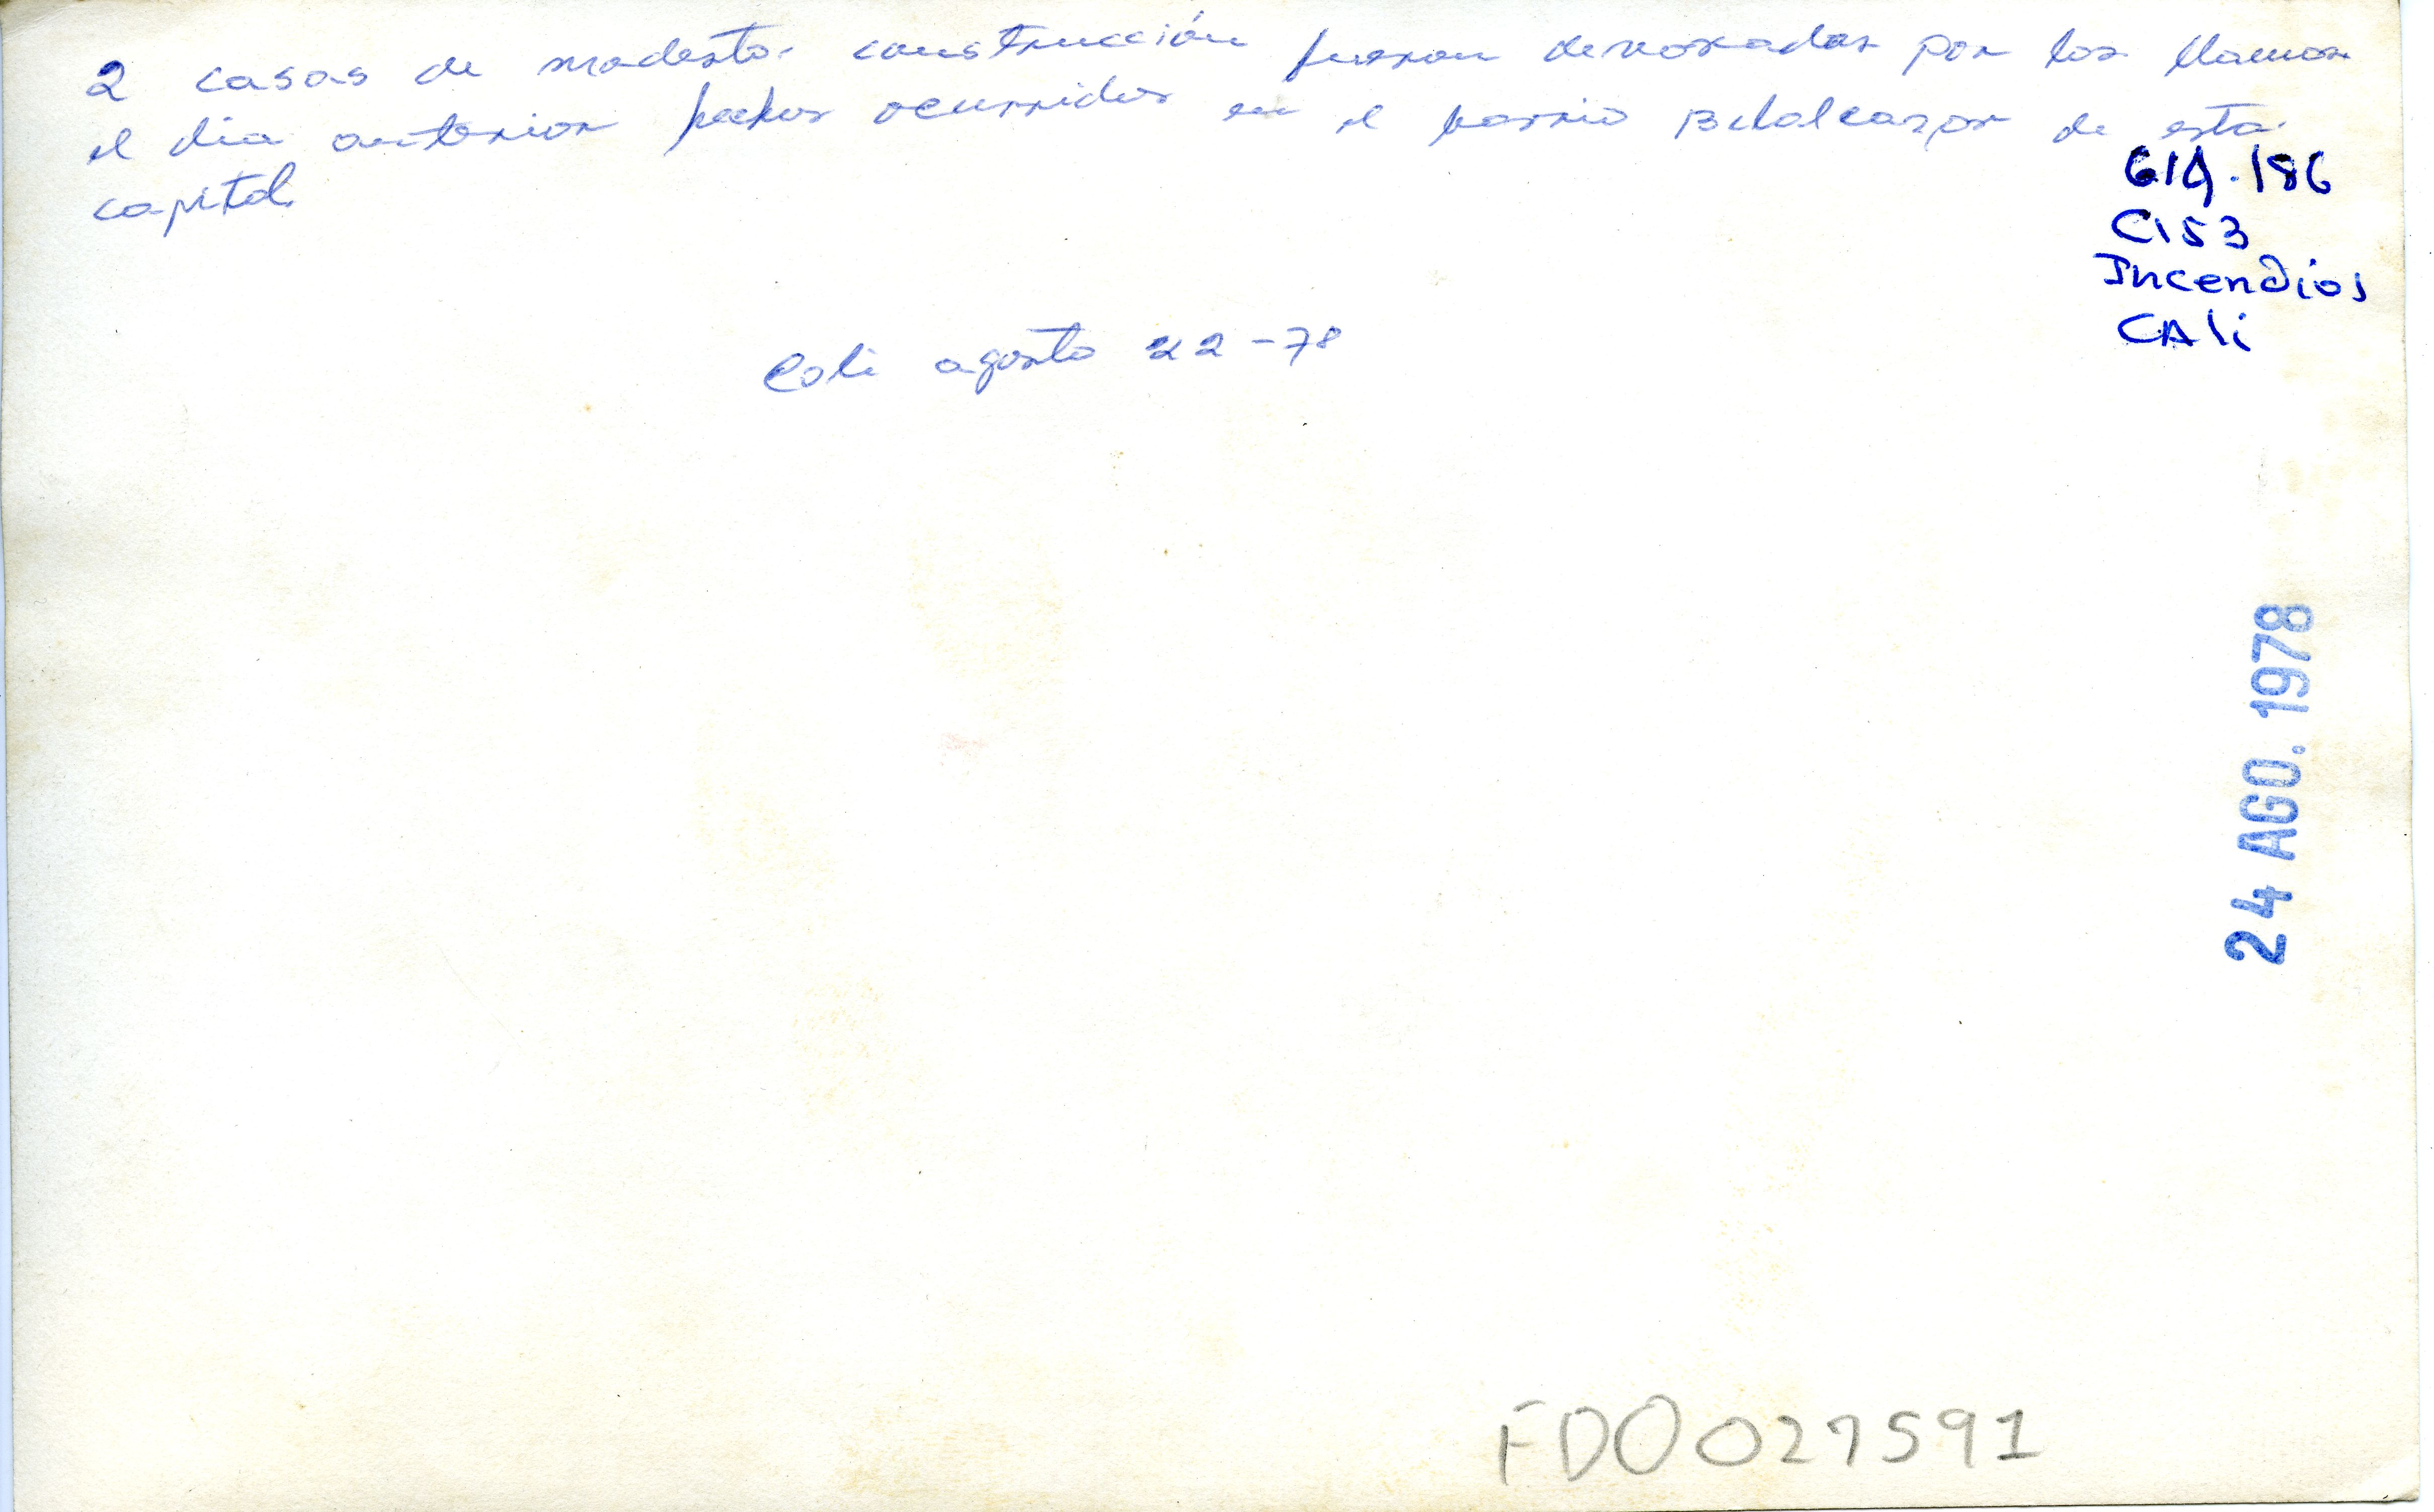 2 casas de modesta construcción fueron devoradas por las llamas
el dia anterior hechos ocurridos en el barrio Belalcazar de esta
capital
614.186
C153
Incendios
CALi
Cali agosto 22-78
24 AGO. 1978
FDO027591